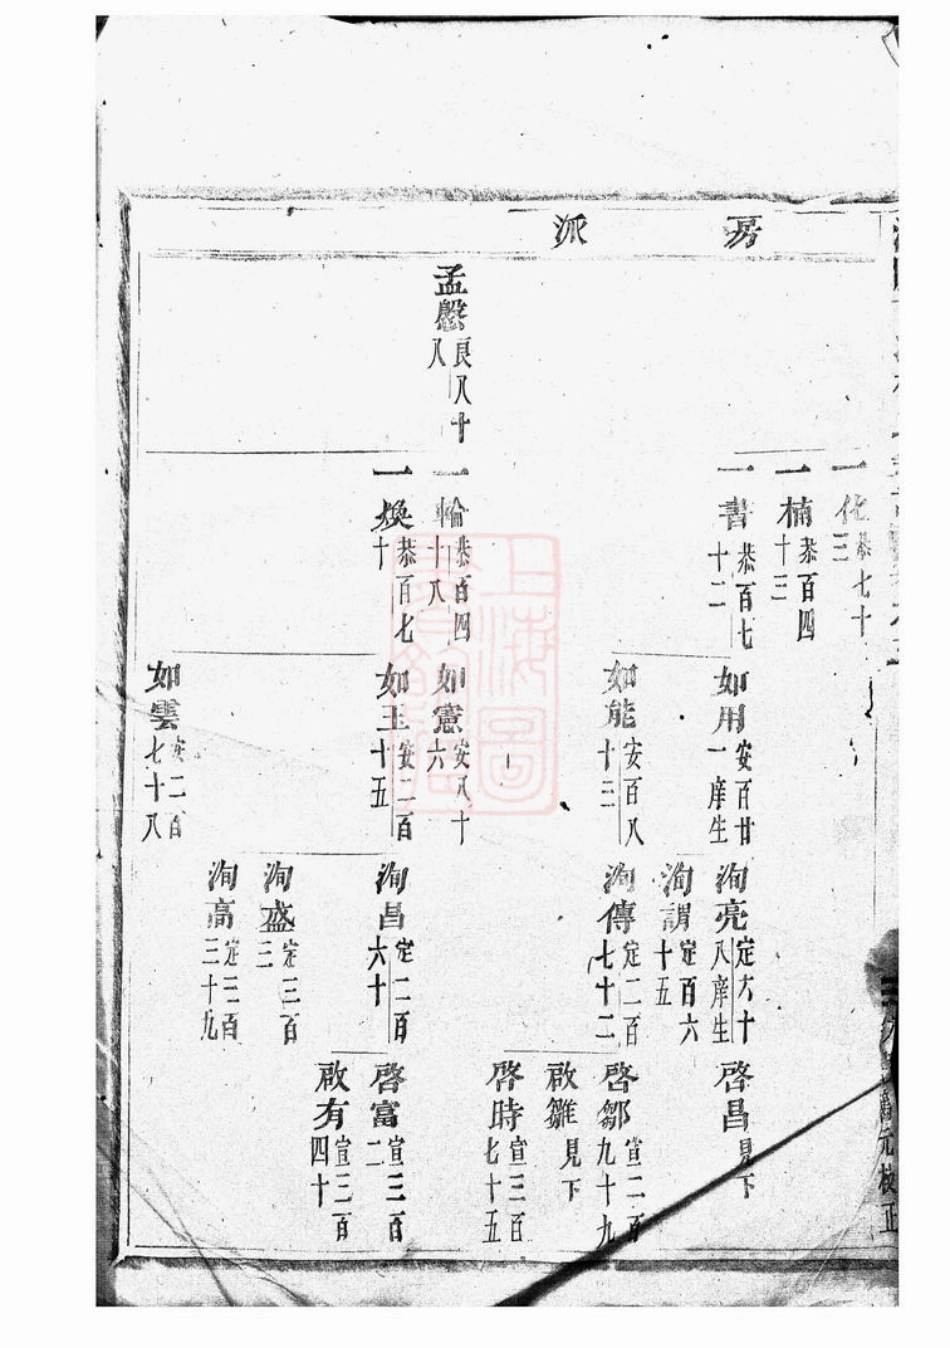 房派
一化恭七十三
一楠恭百四十三
一書恭百七十二
孟慇良八十八
一輪恭百四十八
一煥恭百七十
如用安百廿一庠生
如能安百八十三
如憲安八十六
如玉安二百十五
如雲安二百七十八
洵亮定六十八庠生
洵謂定百六十五
洵傳定二百七十二
洵昌定二百六十
洵盛定三百三
洵高定三百三十九
啓昌見下
啓鄒宣二百九十九
啟雛見下
啓時宣三百七十五
啓富宣三百二
啟有宣三百四十
元校正
上海圖書館藏